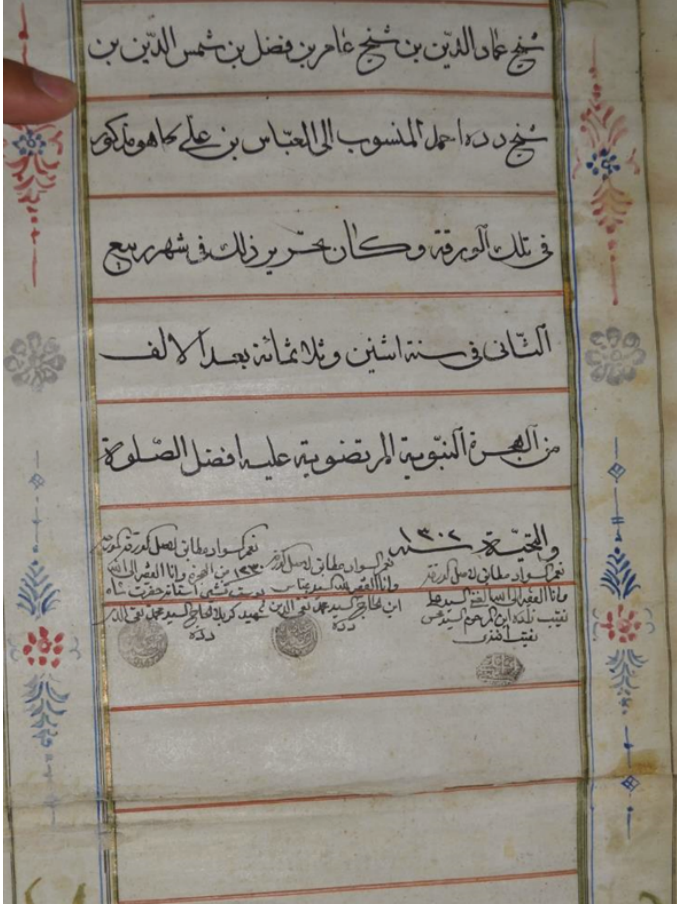 شيخ عماد الدّين بن شيخ عامر بن فضل بن شمس الدّين بن
شيخ دده احمد المنسوب الى العبّاس بن علي كما هو مذكور
فى تلك الورقة وكان تحرير ذلك فى شهر ربيع
الثّانى فى سنة اثنين وثلاثمائة بعد الالف
من الهجرة النبّوية المرتضوية عليه افضل الصّلوة
والتحيّة سنه ١٣٠٢
نعم السواد مطابق لاصل
وانا الفقير الى الله الغنى السيد
نقيب زاده ابن المرحوم السيد
نقيب افندى
نعم السواد مطابق لاصل
وانا الفقير لله السيد عباس
ابن الحاج السيد محمد تقى الدين
دده
نعم السواد مطابق لاصل
١٣٣٠ من الهجرة وانا الفقير الى الله
يوسف آستانه حضرت شاه
شهيد كربلا الحاج السيد محمد تقى الدين
دده